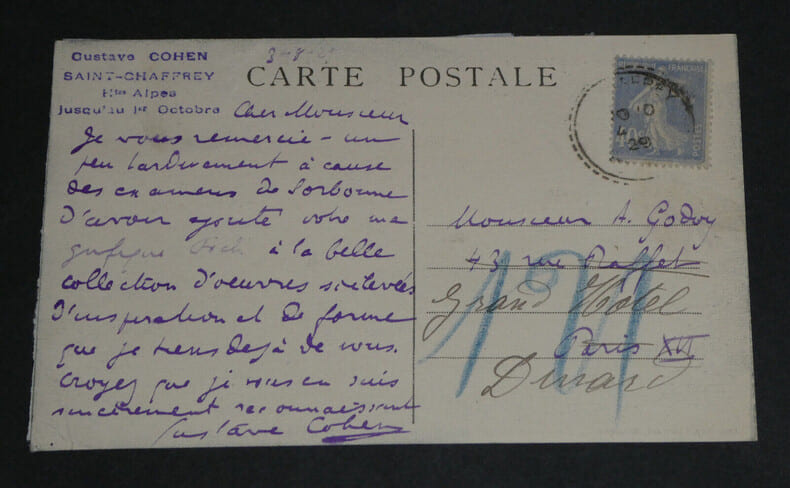 Gustave COHEN
SAINT-CHAFFREY
Htes Alpes
Jusqu'au 1er Octobre
3-8-
CARTE POSTALE
Cher Monsieur
Je vous remercie - un
peu tardivement à cause
des examens de Sorbonne
D'avoir ajouté votre ma
gnifique à la belle
collection d'oeuvres
D'inspiration et de forme
que je tiens dejà de vous.
Croyez que je vous en suis
sincèrement reconnaissant
Gustave Cohen
FRANÇAISE
POSTES
29
Monsieur A. Godoy
43 rue Raffet
Grand Hôtel
Paris XVI
Dinard